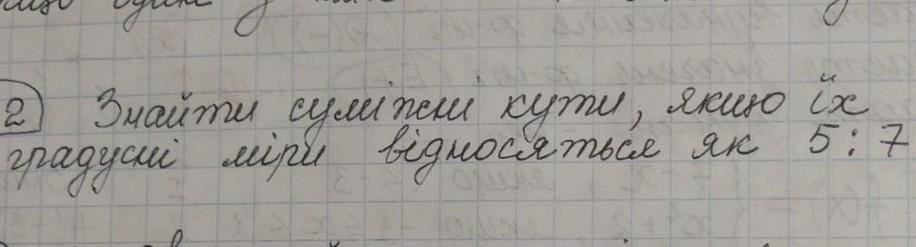 2 Знайти суміжні кути, якщо їх
градусні міри відносяться як 5:7